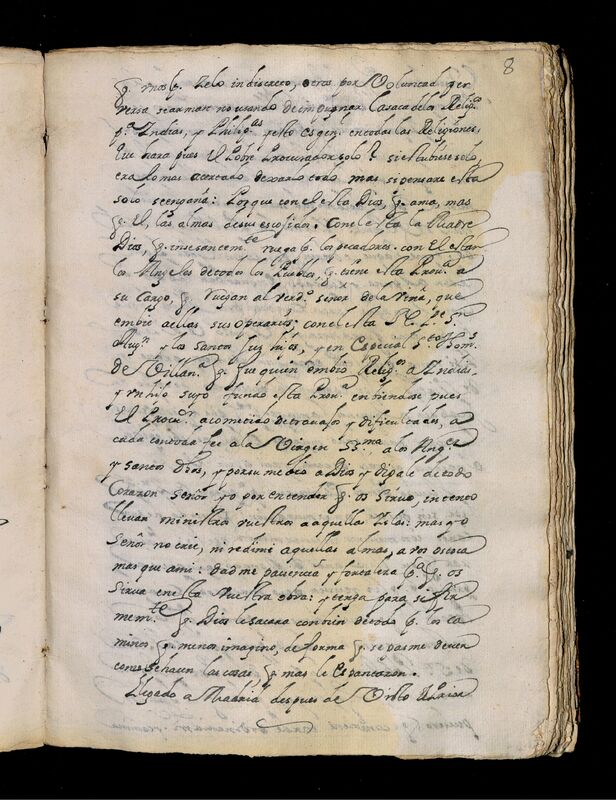 8
q. unos p. zelo indiscreto, otros por voluntad per
versa searman no usando de impugnar la saca dela Relig.n
p.a Indias, y Philip.as y esto es gen.l en todas las Religiones,
que hara pues el pobre Procurador solo? si estubiese solo,
era lo mas acertado dexarlo todo mas si pensare esta
solo se engaña: Porque con el esta Dios, q. ama, mas
q. El, las almas desus escojidos. Con el esta la Madre
Dios, q. incesantem.te ruega p. los pecadores. con El estan
los Angeles de todos los Pueblos, q. tiene esta Prov.a a
su cargo, q. ruegan al verd.o señor dela viña, que
embie a ellas sus operarios; con el esta N. P.e S.n
Aug.n y los santos sus hijos, y en especial S.to Thom.s
de Villan.a q. fue quien embio Relig.os a Indias,
y un hijo suyo fundo esta Prov.a entiendase pues
El Procu.or acometido de travajos y dificultades, a
cada con toda fee a la Virgen SS.ma a los Ang.es
y santos dhos, y por su medio a Dios y digale de todo
Corazon señor yo por entender q. os sirvo, intento
llevar ministros vuestros a aquellas Islas: mas yo
señor no crie, ni redimi aquellas almas, a vos os toca
mas que ami: dad me paciencia y fortaleza p.a q. os
sirva en esta vuestra obra: y tenga para si fir
mem.te q. Dios le sacara con bien de todo p. los ca
minos q. menos imagino, de forma q. se pasme de ver
como se hacen las cosas q. mas le espantaron.
Llegado a Madrid despues de